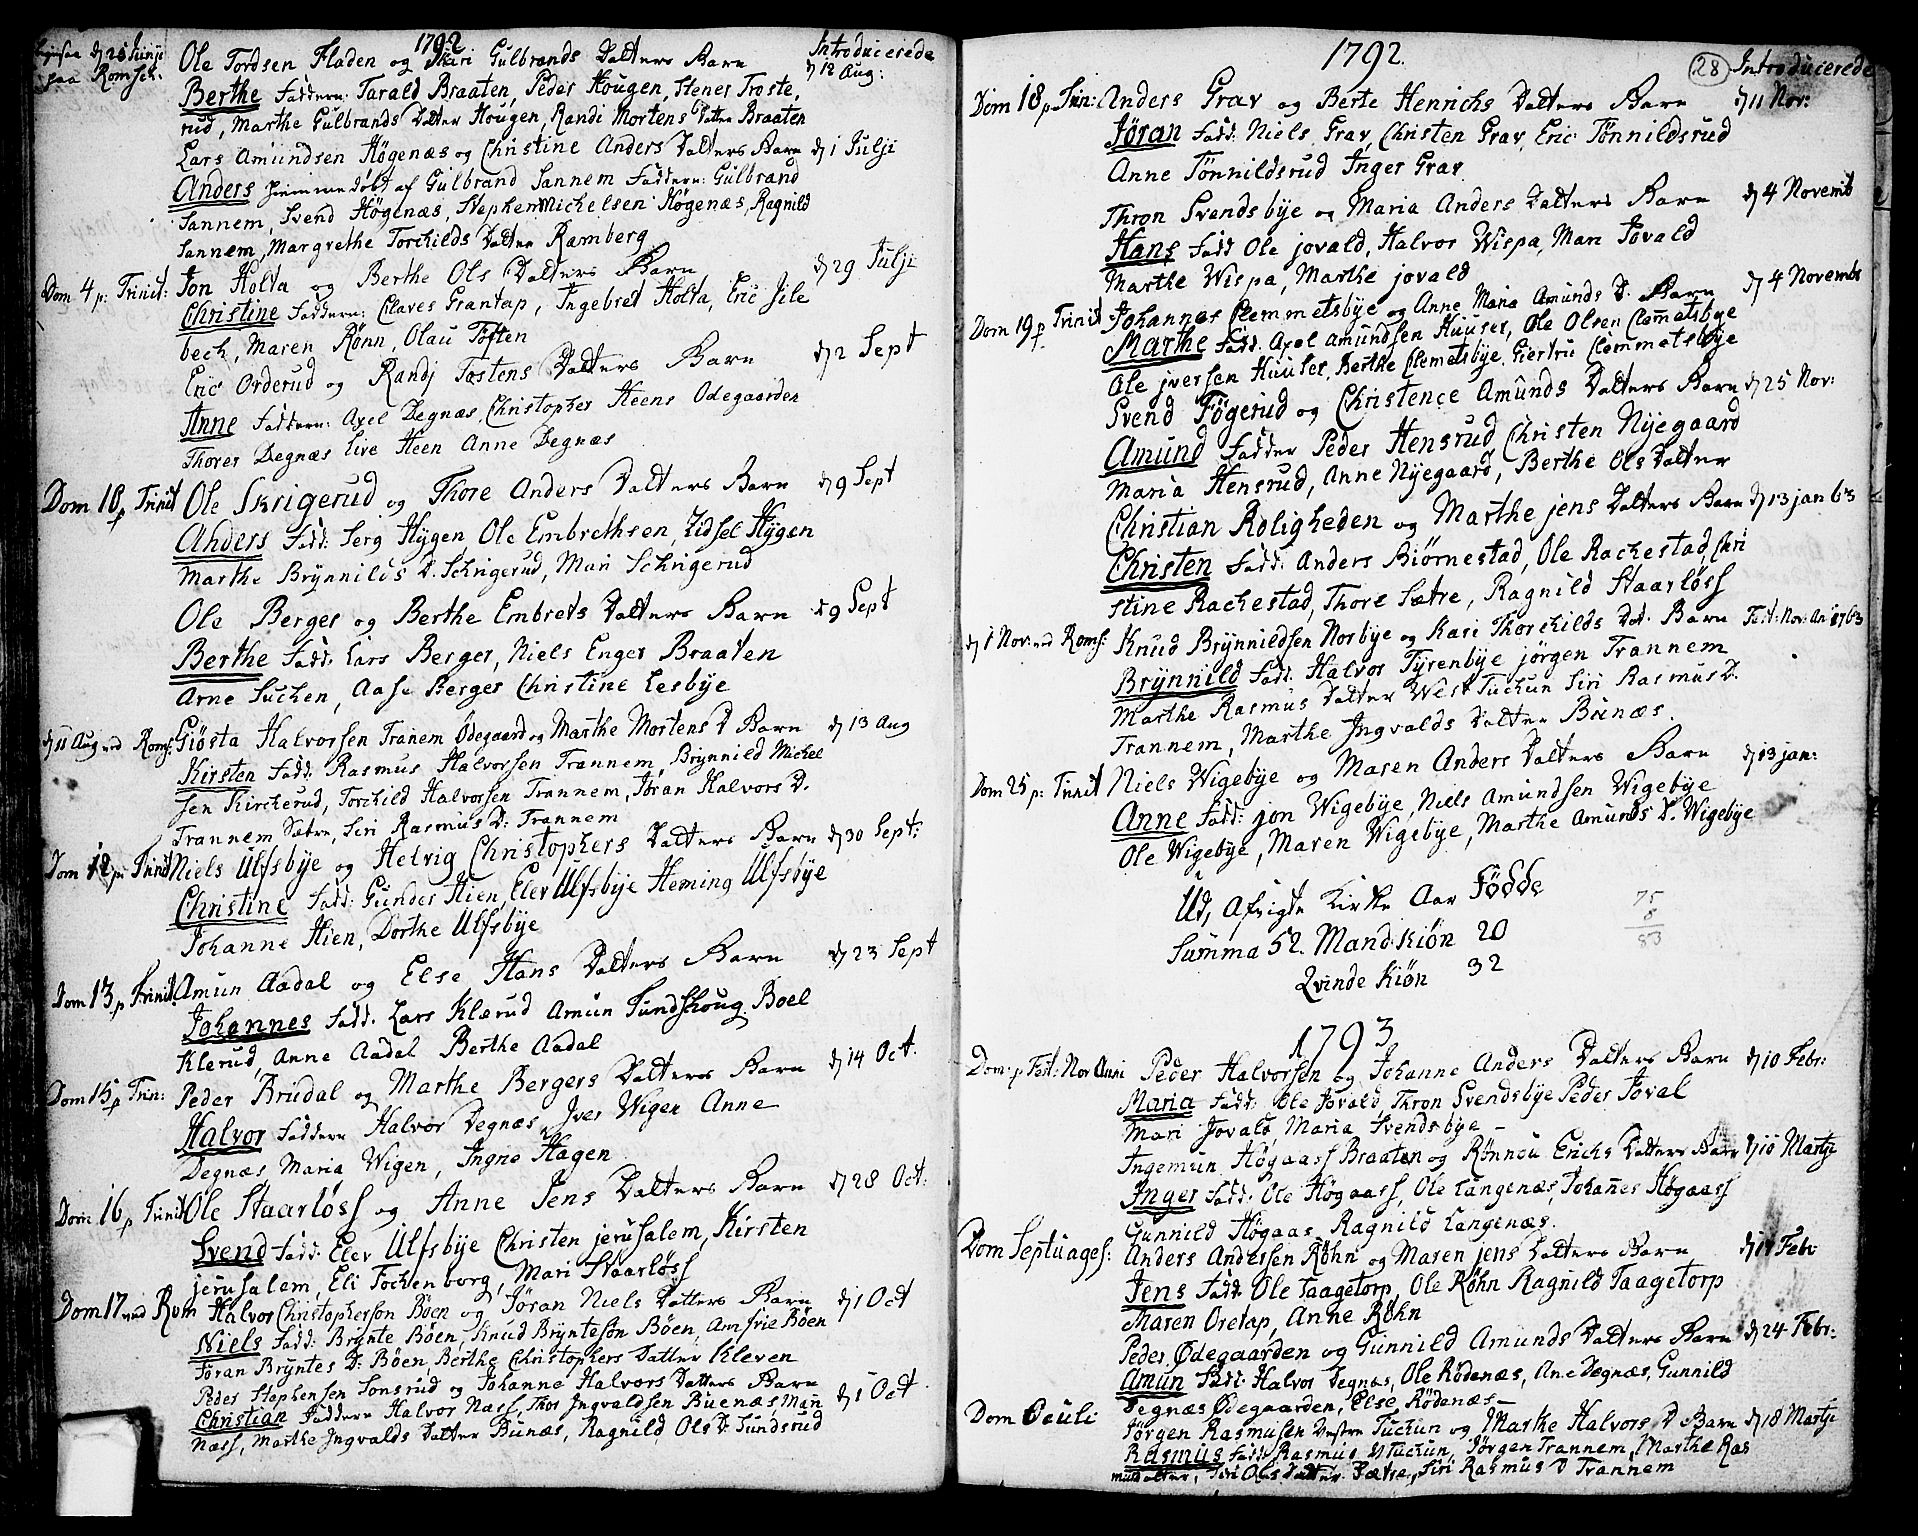 1792
Introducerede
d 28 Junij Ole Tordsen Fladen og Kari Gulbrands Datters Barn d 12 Aug:
paa Romsch: Berthe Faddern: Tarald Braaten, Peder Hougen, Stener Troste,
rud, Marthe Gulbrands Datter Hougen, Randi Mortens Datter Braaten
Lars Amundsen Högenæs og Christine Anders Datters Barn d 1 Julji
Anders hiemmedøbt af Gulbrand Sannem Faddern: Gulbrand
Sannem, Svend Högenæs, Stephen Michelsen Högenæs, Ragnild
Sannem, Margrethe Torchilds Datter Ramberg
Dom 4 p: Trinit: Jon Holta og Berthe Ols Datters Barn d 29 Julji
Christine Faddern: Claves Grantap, Ingebret Holta, Eric Sile
bech, Maren Rönn, Olau Toften
Eric Orderud og Randj Tostens Datters Barn d 2 Sept
Anne Faddern: Axel Degnæs, Christopher Heens Odegaarden
Thores Degnæs Live Heen Anne Degnæs
Dom 10 p Trinit Ole Skrigerud og Thore Anders Datters Barn d 9 Sept
Anders Fadd: Serg Hygen, Ole Embrethsen, Zidsel Hygen
Marthe Brynnilds D. Schrigerud, Mari Schrigerud
Ole Berger og Berthe Embrets Datters Barn d 9 Sept
Berthe Fadd: Lars Berger, Niels Enger Braaten
Arne Suchen, Aase Berger Christine Lesbye
d 11 Aug ved Roms: Giösta Halvorsen Tranem Ödegaard og Marthe Mortens D Barn d 13 Aug
Kirsten Fadd: Rasmus Halvorsen Trannem, Brynnild Michel
sen Kircherud, Torchild Halvorsen Trannem, Jöran Halvors D.
Trannem Sætre, Siri Rasmus D: Trannem
Dom 12 p: Trinit Niels Ulfsbye og Helvig Christophers Datters Barn d 30 Sept:
Christine Fadd: Gunder Hien, Elev Ulfsbye Heming Ulfsbye
Johanne Hien, Dorthe Ulfsbye
Dom 13 p Trinit. Amun Aadal og Else Hans Datters Barn d 23 Sept
Johannes Fadd. Lars Klærud Amun Sundshoug Boel
Klerud, Anne Aadal Berthe Aadal
Dom 15 p Trin: Peder Brudal og Marthe Bergers Datters Barn d 14 Oct.
Halvor Faddern Halvor Degnæs, Iver Wiger Anne
Degnæs Maria Wigen, Ingrie Hagen
Dom 16 p Trinit Ole Staarløss og Anne Jens Datters Barn d 28 Oct:
Svend Fadd: Elev Ulfsbye Christen jerusalem, Kirsten
jerusalem, Eli Fochenborg, Mari Staarløss
Dom 17 ved Rom Halvor Christopherson Böen og Jöran Niels Datters Barn d 1 Oct
Niels Fadd: Brynte Böen, Knud Bryntesön Böen, Amfrie Böen
Jöran Bryntes D: Böen, Berthe Christophers Datter Kleven
Peder Stephensen Sonsrud og Johanne Halvors Datters Barn d 1 Oct
Christian Faddern Halvor Næss, Thor Ingvaldsen Buenæs, Mari
Næss, Marthe Ingvalds Datter Bunæs, Ragnild Ols D. Sundsrud
1792.
28 Introducerede
Dom 18 p Trin: Anders Grav og Berte Henrichs Datters Barn d 11 Nov:
Jöran Fadd: Niels Grav, Christen Grav, Eric Tönnildsrud
Anne Tönnildsrud Inger Grav
Thron Svendsbye og Maria Anders Datters Barn d 4 Novemb
Hans Fadd Ole jovald, Halvor Wispa, Mari Jovald
Marthe Wispa, Marthe jovald
Dom 19 p Trinit Johannes Clemmetsbye og Anne Maria Amunds D. Barn d 4 Novembr
Marthe Fadd. Axel Amundsen Huuser, Ole Olsen Clemetsbye
Ole jversen Huuser, Berthe Clemetsbye, Giertru Clemmetsbye
Svend Fögerud og Christence Amunds Datters Barn d 25 Nov:
Amund Fadder Peder Hensrud Christen Nyegaard
Maria Hensrud, Anne Nyegaard, Berthe Ols Datter
Christian Roligheden og Marthe jens Datters Barn d 13 jan 63
Christen Fadd: Anders Biørnestad, Ole Rachestad, Chri
stine Rachestad, Thore Sætre, Ragnild Staarløss
d 1 Nov: ved Roms: Knud Brynnildsen Norbye og Kari Thorchilds Dot. Barn Fest: Nov: An: 1763
Brynnild Fadd. Halvor Tyrenbye jörgen Trannem
Marthe Rasmus Datter West Tuchun Siri Rasmus D.
Trannem, Marthe Ingvalds Datter Bunæs.
Dom 25 p: Trinit Niels Wigebye og Maren Anders Datters Barn d 13 jan:
Anne Fadd: jon Wigebye, Niels Amundsen Wigebye
Ole Wigebye, Maren Wigebye, Marthe Amunds D. Wigebye
Ud, Afvigte Kirke Aar Födde
Summa 52. Mandkiøn 20
Qvinde Kiøn 32
75
8
83
1793
Dom: p Fest: Nov Anni Peder Halvorsen og Johanne Anders Datters Barn d 10 Febr:
Maria Fadd: Ole Jovald, Thron Svendsbye Peder Joval
Mari Jovald, Maria Svendsbye –
Ingemun Høgaass Braaten og Rönnou Erichs Datters Barn d 10 Martji
Inger Fadd: Ole Høgaass, Ole Langenæs, Johanes Høgaass
Gunnild Høgaas, Ragnild Langenæs.
Dom Septuages: Anders Andersen Röhn og Maren jens Datters Barn d 17 Febr
Jens Fadd: Ole Taagetorp, Ole Röhn Ragnild Taagetorp
Maren Oretap, Anne Röhn
Peder Ødegaarden og Gunnild Amunds Datters Barn d 24 Febr:
Amun Fadd: Halvor Degnæs, Ole Rödenæs, Ane Degnæs, Gunnild
Degnæs Ødegaarden, Else Rödenæs –
Dom Oculi Jörgen Rasmusen Vestre Tuchun og Marthe Halvors D Barn d 18 Martji
Rasmus Fadd: Rasmus V Tuchun, Jörgen Trannem, Marthe Ras
mus datter, Siri Ols Datter Sætre, Siri Rasmus D Trannem